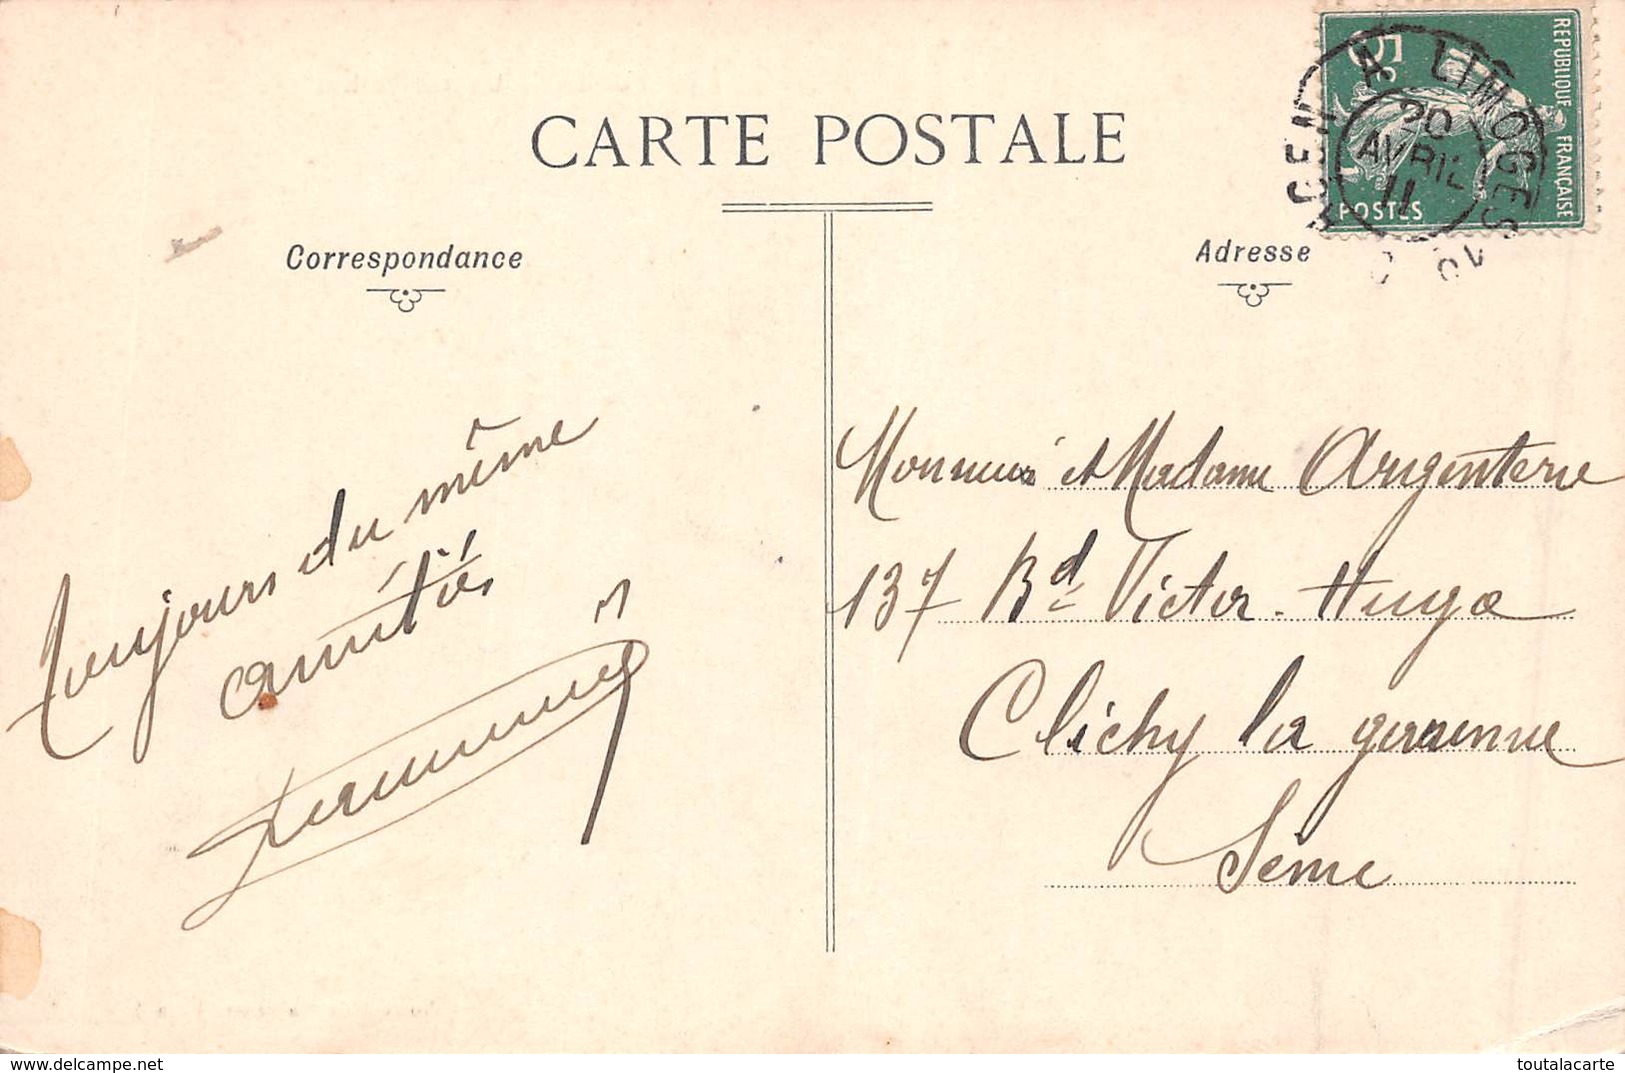 CARTE POSTALE
Correspondance
Adresse
REPUBLIQUE FRANÇAISE
5c
POSTES
AGEN A LIMOGES
20
AVRIL
11
Toujours du même
amitiés
Monsieur et Madame Argenterie
137 Bd Victor-Hugo
Clichy la garenne
Seine
delcampe.net
toutalacarte